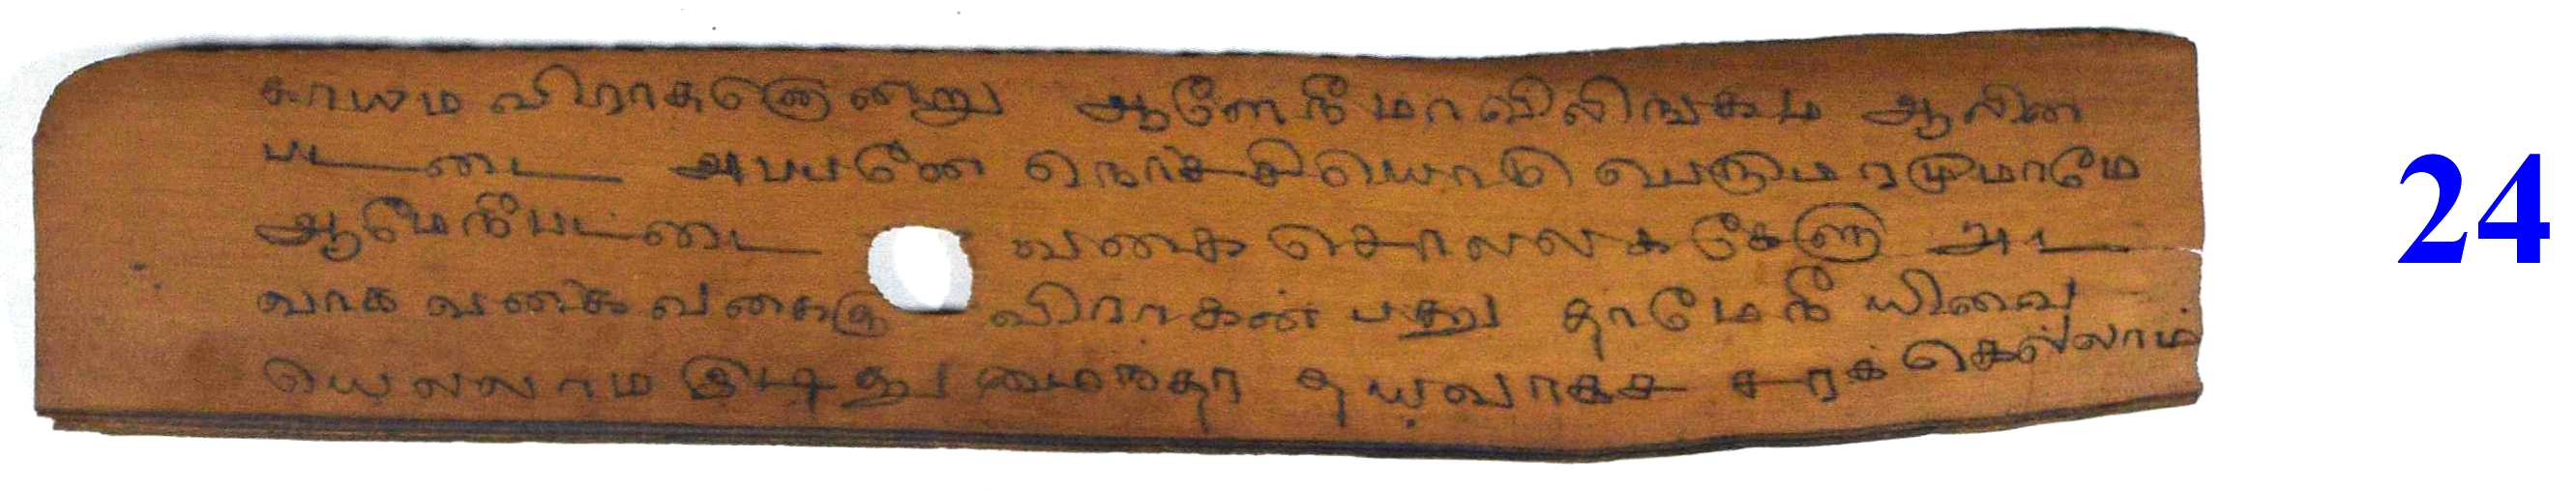 காயம விராகனொன்று ஆனேநீமாவிலிங்கம ஆலின
பட்டை அப்பனே நொச்சியொடு பெருமரமுமாமே
ஆமேநீபட்டை வகை சொலலககேளு அட
வாக வகை வகைகு விராகன் பத்து தாமேநீ யிவை
யெலலாம இடித்து மைந்தா தயவாகச சரக்கெல்லாம்
24